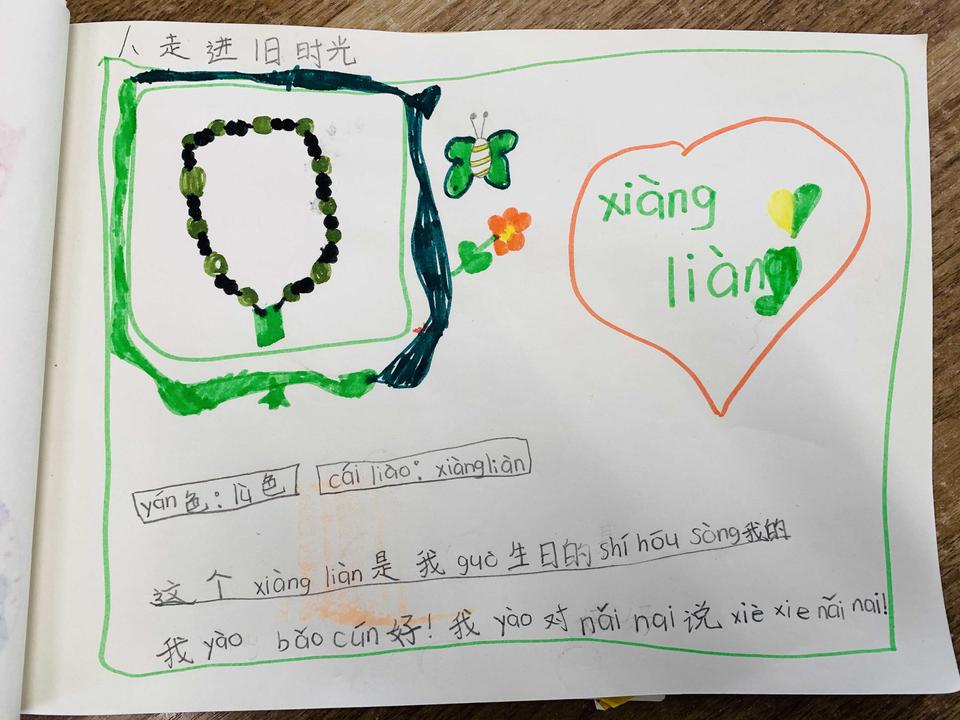 走进旧时光
xiàng
liàng
yán色：lù色 cái liào：xiàngliàn
这个 xiàng liàn 是我 guò 生日的 shí hōu sòng 我的
我 yào bǎo cún 好！我 yào 对 nǎi nai 说 xiè xie nǎi nai!